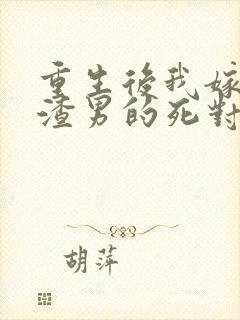 重生後我嫁
渣男的死對
胡萍